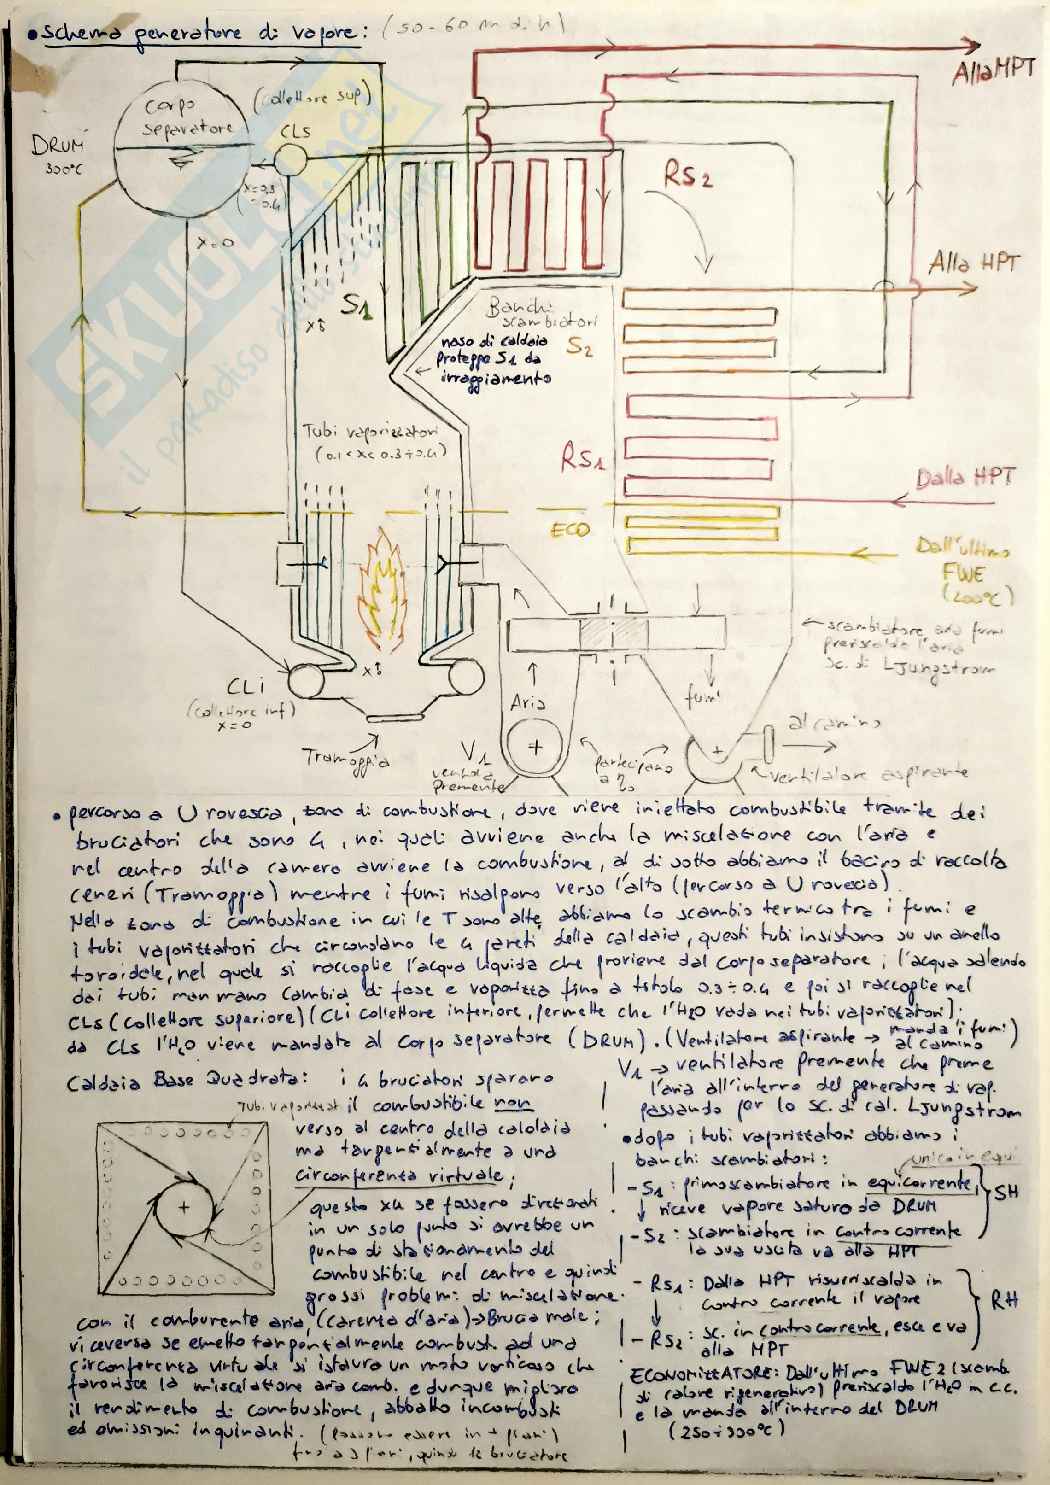 • schema generatore di vapore: (50-60 m di h)
Alla MPT
Corpo
separatore
(collettore sup)
CLs
DRUM
300°C
x=0.3
÷0.4
x=0
RS2
Alla HPT
S1
x↑
Banchi
scambiatori
S2
naso di caldaia
Protegge S1 da
irraggiamento
Tubi vaporizzatori
(0.1 < x < 0.3÷0.4)
RS1
Dalla HPT
ECO
Dall'ultimo
FWE
(200°C)
scambiatore aria fumi
preriscalda l'aria
sc. di Ljungstrom
x↑
CLi
(collettore inf)
x=0
Aria
fumi
al camino
Tramoggia
V1
ventola
premente
partecipano
a η
ventilatore aspirante
• percorso a U rovescia, zona di combustione, dove viene iniettato combustibile tramite dei
bruciatori che sono 4, nei quali avviene anche la miscelazione con l'aria e
nel centro della camera avviene la combustione, al di sotto abbiamo il bacino di raccolta
ceneri (Tramoggia) mentre i fumi risalgono verso l'alto (percorso a U rovescia).
Nella zona di combustione in cui le T sono alte, abbiamo lo scambio termico tra i fumi e
i tubi vaporizzatori che circondano le 4 pareti della caldaia, questi tubi insistono su un anello
toroidale, nel quale si raccoglie l'acqua liquida che proviene dal Corpo separatore; l'acqua salendo
dai tubi man mano cambia di fase e vaporizza fino a titolo 0.3÷0.4 e poi si raccoglie nel
CLs (collettore superiore) (CLi collettore inferiore, permette che l'H2O vada nei tubi vaporizzatori);
da CLs l'H2O viene mandata al Corpo separatore (DRUM). (Ventilatore aspirante → manda i fumi
al camino)
Caldaia Base Quadrata: i 4 bruciatori sparano
Tubi vaporizzat il combustibile non
verso al centro della caldaia
ma tangenzialmente a una
circonferenza virtuale;
questo xké se fossero direzionati
in un solo punto si avrebbe un
punto di stazionamento del
combustibile nel centro e quindi
grossi problemi di miscelazione
con il comburente aria, (carenza d'aria) → Brucia male;
viceversa se emetto tangenzialmente combust. ad una
circonferenza virtuale si istaura un moto vorticoso che
favorisce la miscelazione aria comb. e dunque miglioro
il rendimento di combustione, abbatto incombusti
ed emissioni inquinanti. (possono essere in + piani)
fino a 3 piani, quindi 12 bruciatore
V1 → ventilatore premente che preme
l'aria all'interno del generatore di vap.
passando per lo sc. di cal. Ljungstrom
• dopo i tubi vaporizzatori abbiamo i
banchi scambiatori:
unico in equi
- S1: primo scambiatore in equicorrente,
riceve vapore saturo da DRUM
SH
- S2: scambiatore in controcorrente
la sua uscita va alla HPT
- RS1: Dalla HPT risurriscalda in
contro corrente il vapore
RH
- RS2: sc. in controcorrente, esce e va
alla MPT
ECONOMIZZATORE: Dall'ultimo FWE2 (scamb.
di calore rigenerativo) preriscalda l'H2O in c.c.
e la manda all'interno del DRUM
(250÷300°C)